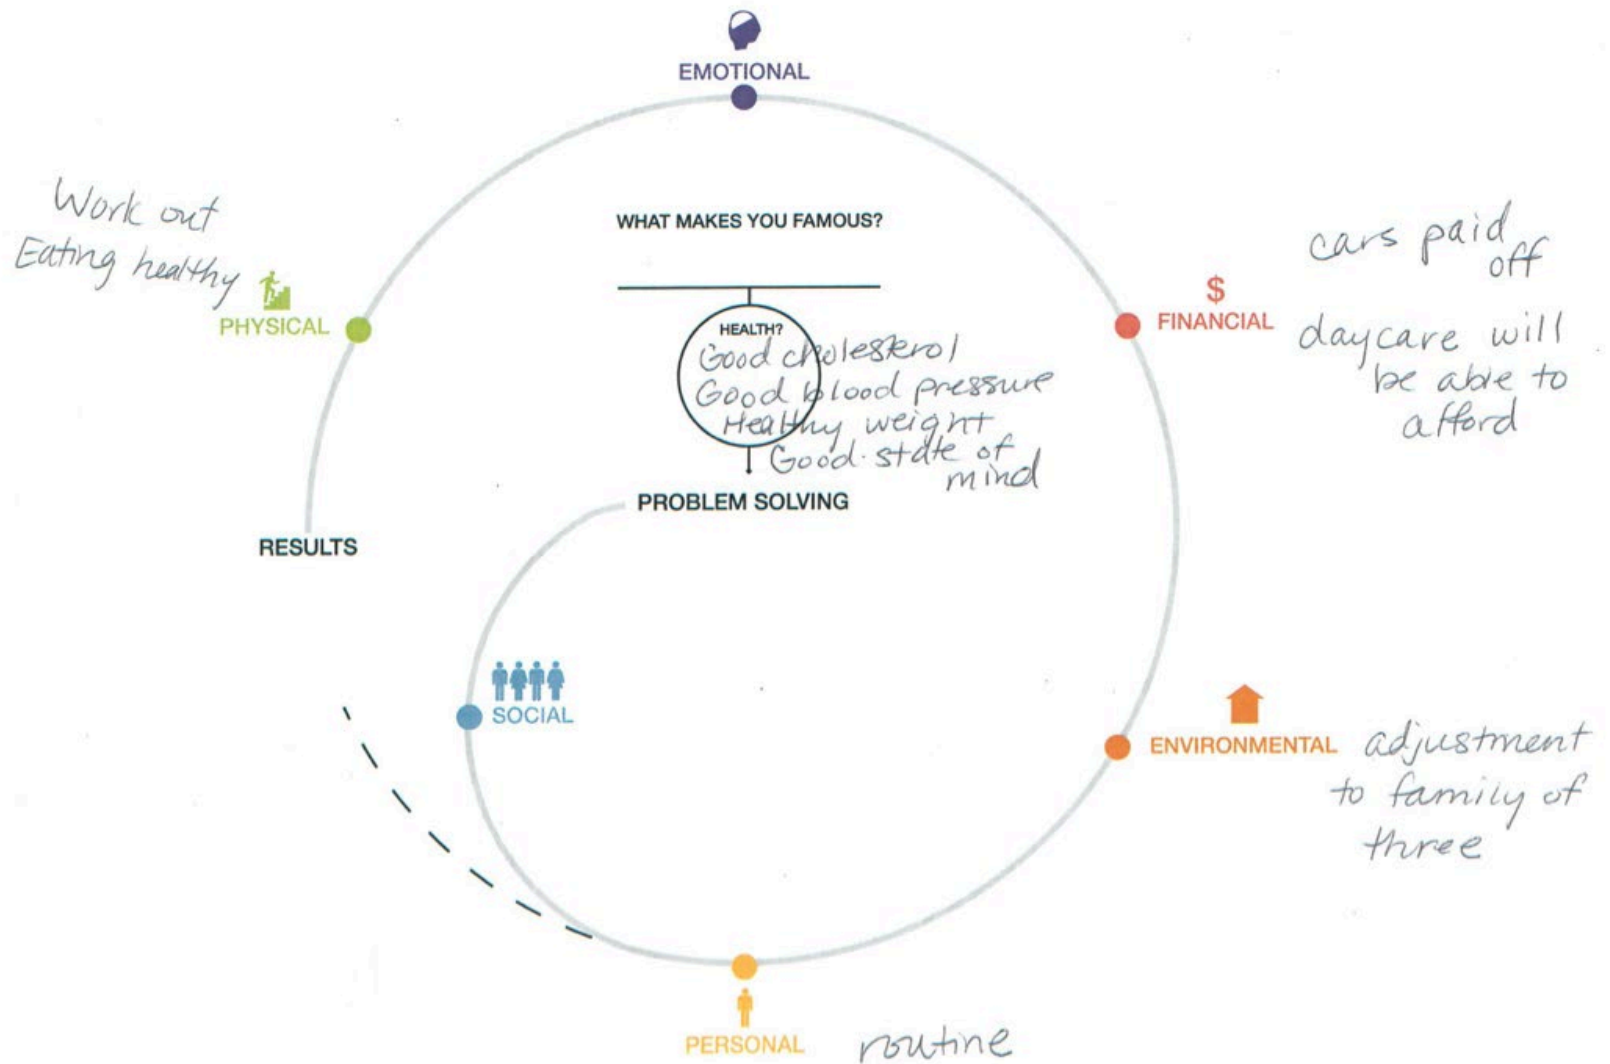 EMOTIONAL
WHAT MAKES YOU FAMOUS?
Work out
Eating healthy
PHYSICAL
HEALTH?
Good cholesterol
Good blood pressure
Healthy weight
Good state of
mind
PROBLEM SOLVING
RESULTS
$
FINANCIAL
cars paid
off
daycare will
be able to
afford
SOCIAL
ENVIRONMENTAL
adjustment
to family of
three
PERSONAL
routine